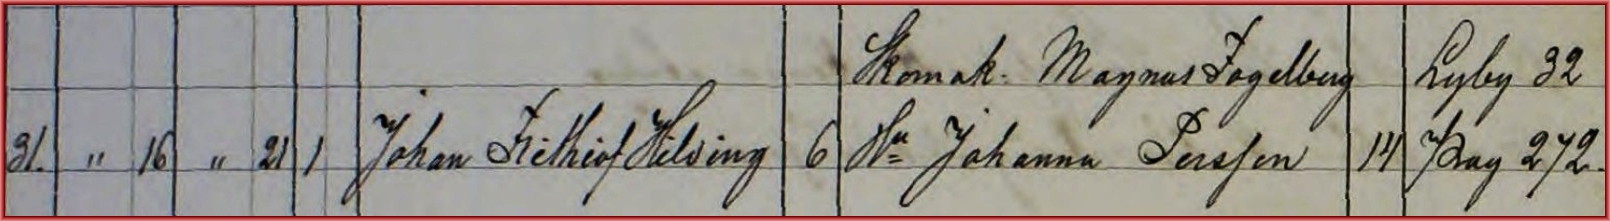 Skomak. Magnus Fogelberg Lyby 32
31. " 16 " 21 1 Johan Frithiof Helsing 6 Hu Johanna Persson 14 pag 272.